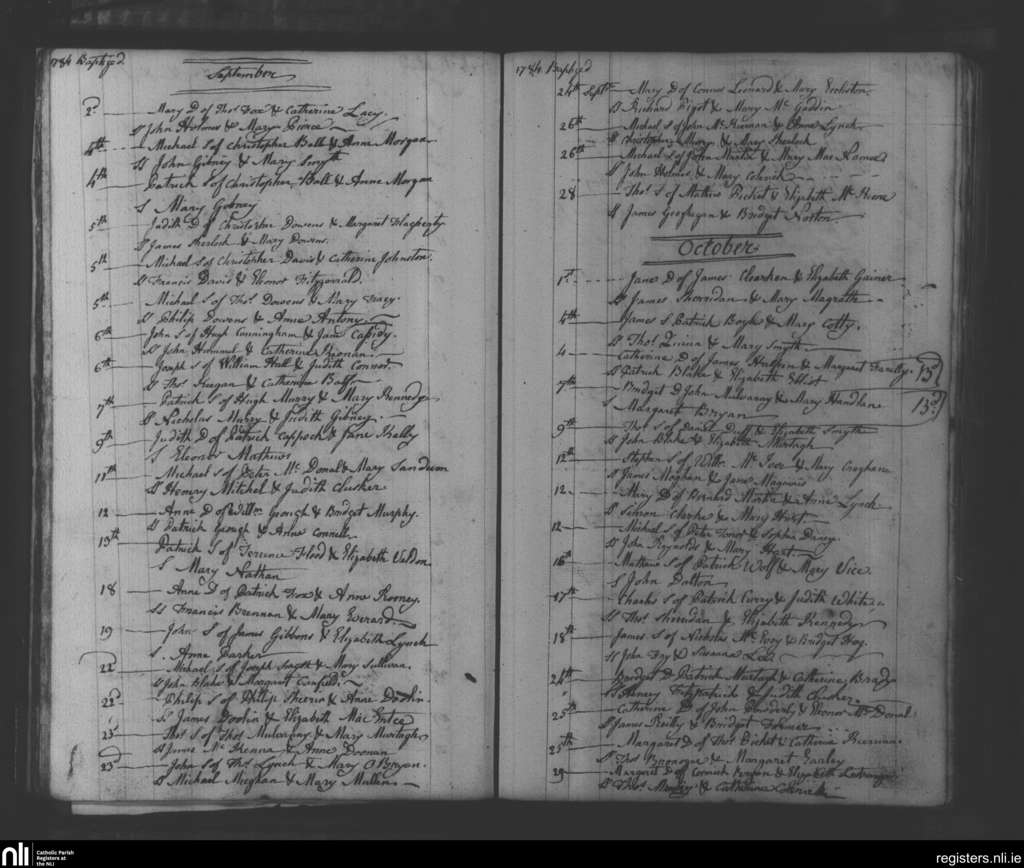 1784 Baptized
September
2d Mary D of Thos Fox & Catherine Lacy.
Ss John Holmes & Mary Pierce
4th Michael S of Christopher Ball & Anne Morgan
Ss John Gibney & Mary Smyth
4th Patrick S of Christopher Ball & Anne Morgan
S Mary Gibney
5th Judith D of Christopher Dowens & Margaret Flagherty
Ss James Sherlock & Mary Dowens.
5th Michael S of Christopher Davis & Catherine Johnston.
Ss Francis Davis & Eleonor Fitzgerald.
5th Michael S of Thos Dowens & Mary Tracy.
Ss Philip Dowens & Anne Antony.
6th John S of Hugh Cunningham & Jane Casidy.
Ss John Hummel & Catherine Noonan.
6th Joseph S of William Hall & Judith Connor.
Ss Thos Keegan & Catherine Ball
7th Patrick S of Hugh Murry & Mary Kennedy
Ss Nicholas Murry & Judith Gibney.
9th Judith D of Patrick Cappock & Jane Kelly
S Eleonor Mathews
11th Michael S of Peter Mc Donal & Mary
Ss Henry Mitchel & Judith Clusker
12 Anne D of Willm Geough & Bridget Murphy.
Ss Patrick Geough & Anne Connell
13th Patrick S of Terence Flood & Elizabeth
S Mary Nathan
18 Anne D of Patrick Fox & Anne Rooney.
Ss Francis Brennan & Mary Everard.
19 John S of James Gibbons & Elizabeth Lynch
S. Anne Parker
22 Michael S of Joseph & Mary Sullivan.
Ss John Blake & Margaret
22 Philip S of Philip & Anne Doolin.
Ss James Doolin & Elizabeth Mac Entee
23 Thos S of Thos Mulvanny & Mary Murtagh
Ss James Mc Kenna & Anne Noonan
23 John S of Thos Lynch & Mary O Bryan.
Ss Michael Meighan & Mary Mullen
1784 Baptized
24th Septr Mary D of Connor Leonard & Mary
Ss Richard Pigot & Mary Mc Gaddin
26th Michael S of John Mc Kiernan & Anne Lynch
Ss Christopher & Mary Sherlock
26th Michael S of John Martin & Mary Mac Namee
Ss John Holmes & Mary
28 Thos S of Mathew Picket & Elizabeth Mc Keone
Ss James Geoghegan & Bridget Norton
October
1st Jane D of James Clearkan & Elizabeth Gainer
Ss James Sherridan & Mary Magrath
4th James S Patrick Boyle & Mary Cotty.
Ss Thos Quinn & Mary Smyth
4 Catherine D of James & Margaret Farelly. 13d
Ss Patrick Blake & Elizabeth Elliot
7th Bridget D John Mulvanny & Mary Handlan 13d
S Margaret Bryan
9th Thos S of Daniel Duff & Elizabeth Smyth
Ss John Blake & Elizabeth Murtagh
12th Stephen S of Willm Mc Ivor & Mary Croghan
Ss James Maghan & Jane Magennis
12 Mary D of Bernard Martin & Anne Lynch
Ss Simon Clarke & Mary Hart
12 Michael S of Peter & Sophia Darcy.
Ss John Reynolds & Mary Hart
16th Mathew S of Patrick Wolf & Mary Vice
S John Dalton
17th Charles S of Patrick Corry & Judith White
Ss Thos Sheridan & Elizabeth Kennedy
18th James S of Nicholas Mc Evoy & Bridget Fay.
Ss John Fay & Susanna Lee
24th Bridget D Patrick Murtagh & Catherine Brady
Ss Henery Fitzpatrick & Judith Clusker
25th Catherine D of John & Eleonor Mc Donal
Ss James Reilly & Bridget
25th Margaret D of Thos Picket & Catherine Kiernan.
Ss Thos & Margaret Ganley
29 Margaret D of Cormick & Elizabeth
Ss Thos & Catherine
nli
Catholic Parish
Registers at
the NLI
registers.nli.ie